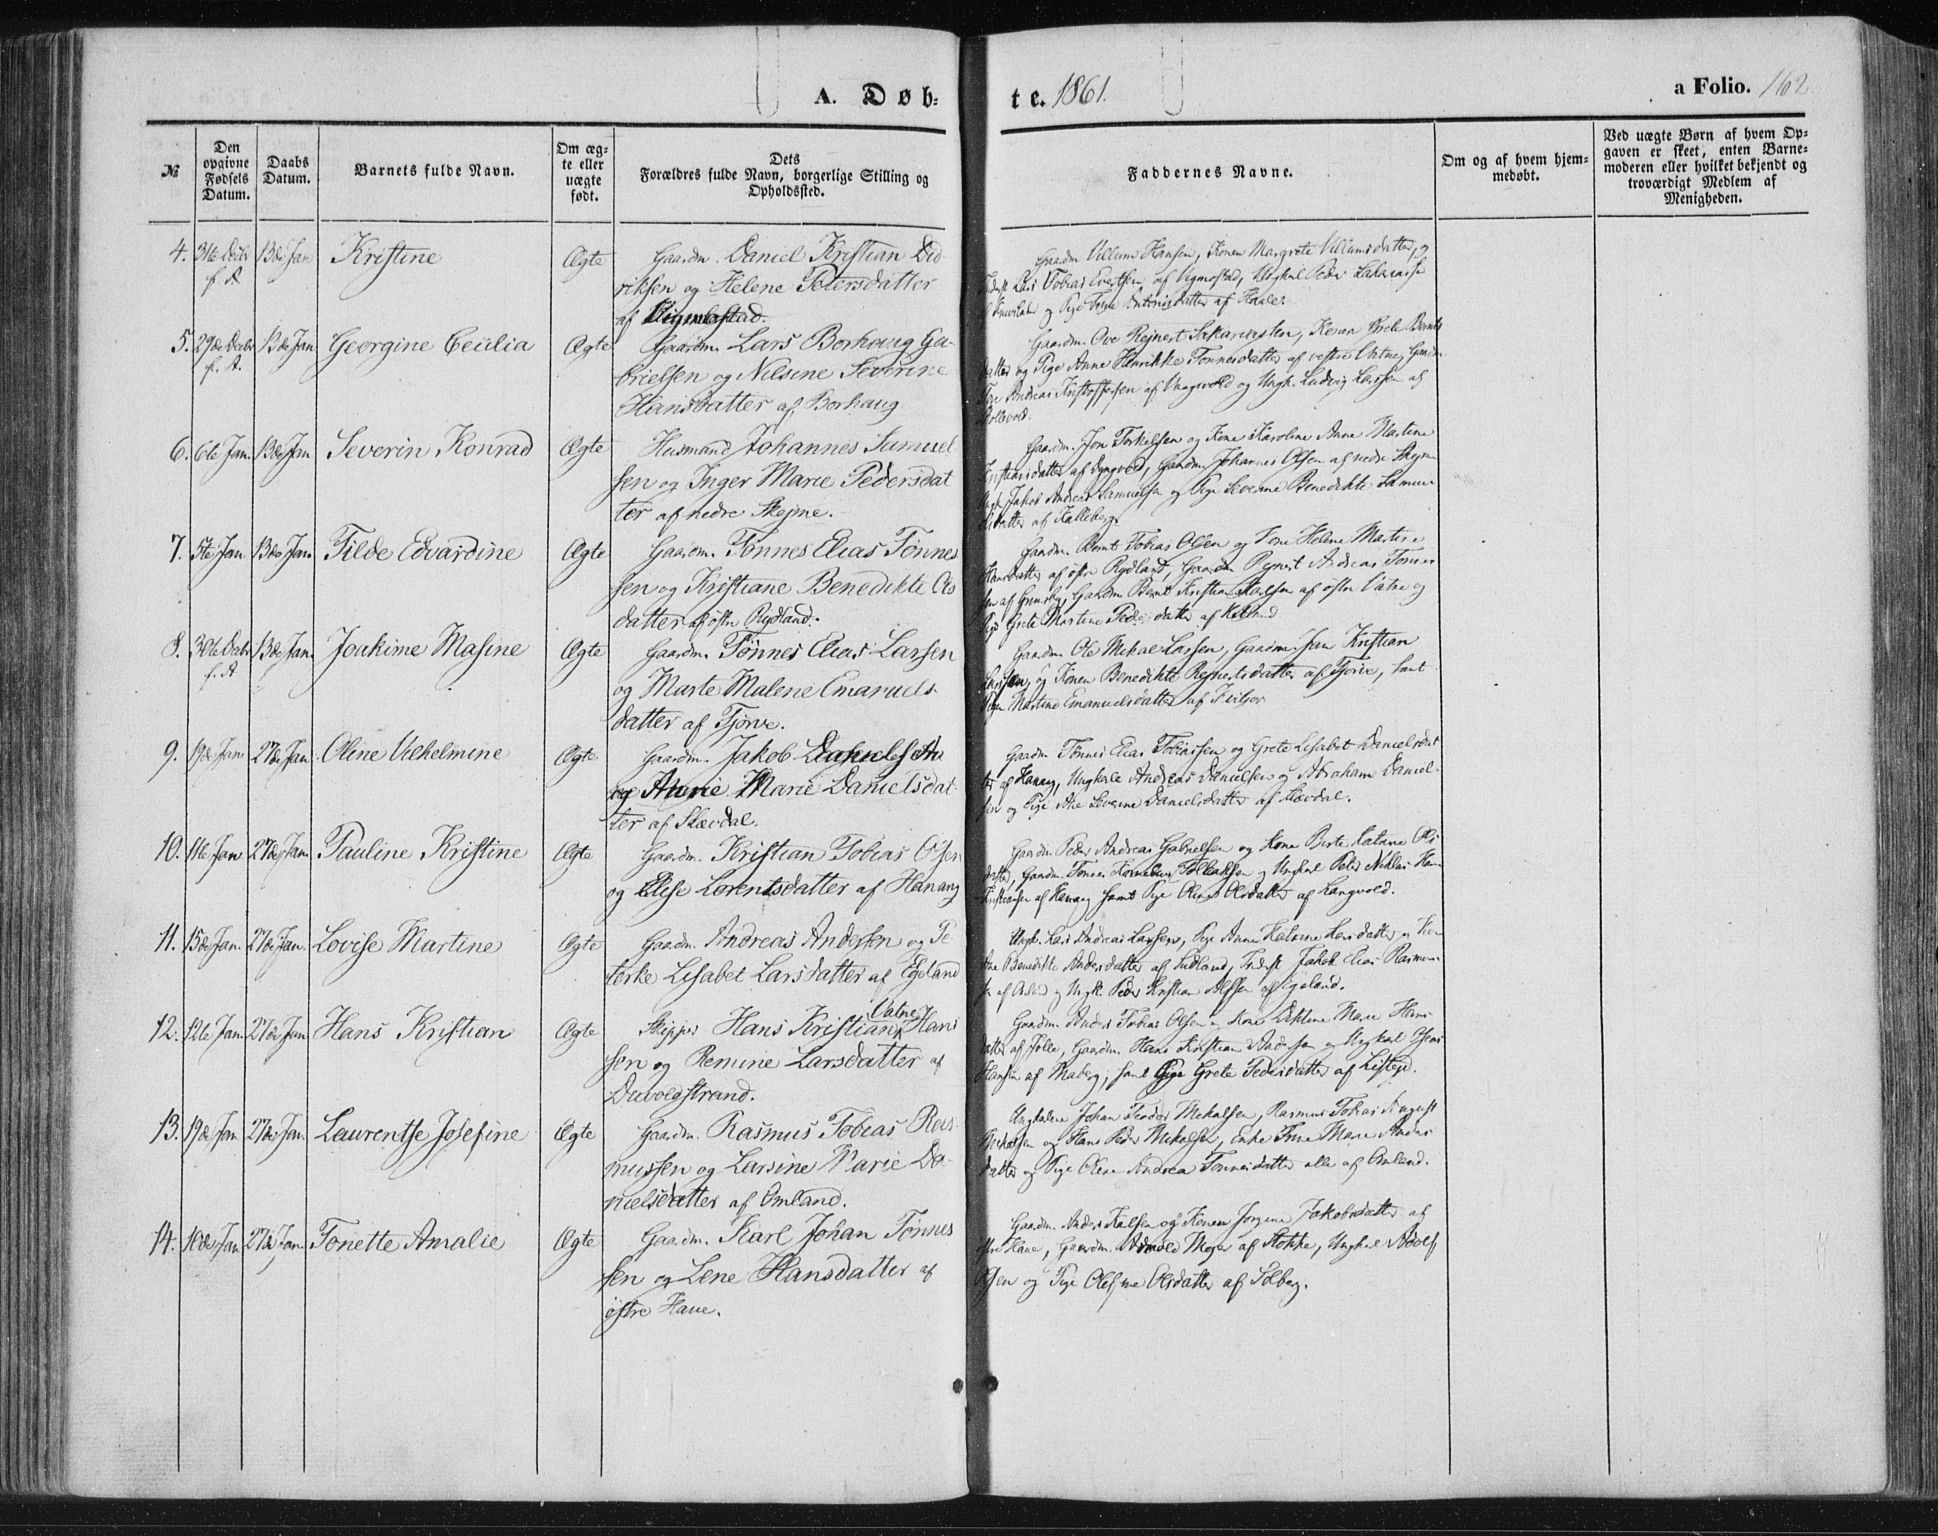 A. Døb-
te. 1861.
a Folio. 162
№
Den opgivne Fødsels Datum.
Daabs Datum.
Barnets fulde Navn.
Om ægte eller uægte født.
Dets Forældres fulde Navn, borgerlige Stilling og Opholdssted.
Faddernes Navne.
Om og af hvem hjemmedøbt.
Ved uægte Børn af hvem Opgaven er skeet, enten Barnemoderen eller hvilket bekjendt og troværdigt Medlem af Menigheden.
4. 31te Decbr f. A. 13de Jan Kristine Ægte Gaardm. Daniel Kristian Did
riksen og Helene Petersdatter
af
Gaardm Villum Hansen, Konen Margrete Villumsdatter, og
Lars Tobias Evertsen af Vigmostad, Ungkarl Peder
og Pige Trine af
5. 29de Decbr f. A. 13de Jan Georgine Cecilia Ægte Gaardm. Lars Borhaug Ga-
brielsen og Nilsine Severine
Hansdatter af Borhaug
Gaardm. Ove Rejnert Sakariassen, Konen Grete Bernts
datter og Pige Anne Henrikke Tønnesdatter af vestre Vatne, Gaardm
Andreas Kristoffersen af og Ungk. Ludvig Larsen af
6. 6te Jan. 13de Jan Severin Konrad Ægte Husmand Johannes Samuel
sen og Inger Marie Pedersdat
ter af nedre Skejne.
Gaardm. Jon Torkelsen og Kone Karoline Anne Martine
Kristiansdatter af Gaardm. Johannes Olsen af nedre Skejne
Ungk. Jakob Andreas Samuelsen og Pige Severine Benedikte Samue
lsdatter af Kalleberg
7. 5te Jan. 13de Jan Tilde Edvardine Ægte Gaardm. Tønnes Elias Tønnes
sen og Kristiane Benedikte Ols
datter af østre Rydland.
Gaardm. Bernt Tobias Olsen og Kone Helene Martine
Hansdatter af østre Rydland, Gaardm Rejnert Andreas Tønnes
sen af Grimsby, Gaardm Bernt Kristian Karlsen af østre Vatne og
Pige Grete Martine Pedersdatter af
8. 30te Decbr f. A. 13de Jan. Joakime Masine Ægte Gaardm. Tønnes Elias Larsen
og Marte Malene Emanuels
datter af Tjørve.
Gaardm. Ole Mikael Larsen, Gaardm. Jan Kristian
Larsen, og Konen Benedikte Rejnertsdatter af Tjørve, samt
Pige Martine Emanuelsdatter af
9. 19de Jan 27de Jan. Oline Vilhelmine Ægte Gaardm. Jakob
og Anne Marie Danielsdat-
ter af Slævdal.
Gaardm Tønnes Elias Tobiassen og Grete Lisabet Danielsdat
ter af Hanang, Ungkarle Andreas Danielsen og Abraham Daniel-
sen og Pige Ane Severine Danielsdatter af Slævdal.
10. 11te Jan 27de Jan. Pauline Kristine Ægte Gaardm. Kristian Tobias Olsen
og Else Lorentsdatter af Hanang
Gaardm Peder Andreas Gabrielsen og Kone Berte Katrine Ols
datter, Gaardm. Tønnes Kornelius Tollaksen og Ungkarl Peter Niklas
Kristiansen af Hanang samt Pige Oline Olsdatter af Langvold.
11. 15de Jan. 27de Jan. Lovise Martine Ægte Gaardm. Andreas Andersen og Pe
terke Lisabet Larsdatter af Egeland
Ungk. Lars Andreas Larsen, Pige Anne Larsdatter og
Benedikte Andersdatter af Sudland, Jakob Elias Rasmus
sen af og Ungk. Peder Kristian Alfsen af Egeland.
12. 12te Jan. 27de Jan Hans Kristian Ægte Skipper Hans Kristian Vatne Hans
sen og Remine Larsdatter af
Duvoldstrand.
Gaardm. Anders Tobias Olsen og Kone Marie Hans
datter af Jølle, Gaardm. Hans Kristian Andersen og Ungkarl
Hansen af Maberg, samt Pige Grete Pedersdatter af Listejd.
13. 19de Jan 27de Jan. Laurentse Josefine Ægte Gaardm. Rasmus Tobias Ras-
mussen og Larsine Marie Da-
nielsdatter af Omland.
Ungkarlene Johan Teodor Mikalsen, Rasmus Tobias August
Mikalsen og Hans Peder Mikalsen, Enke Trine Marie Anders
datter og Pige Oline Andrea Tønnesdatter alle af Omland.
14. 10de Jan. 27de Jan. Tonette Amalie Ægte Gaardm. Karl Johan Tønnes
sen og Lene Hansdatter af
østre Haue.
Gaardm. Anders Kalsen og Konen Jorgine Jakobsdatter af
østre Haue, Gaardm. Arnold Meyer af Stokke, Ungkarl Adolf
Olsen og Pige Olefine Olsdatter af Solberg.